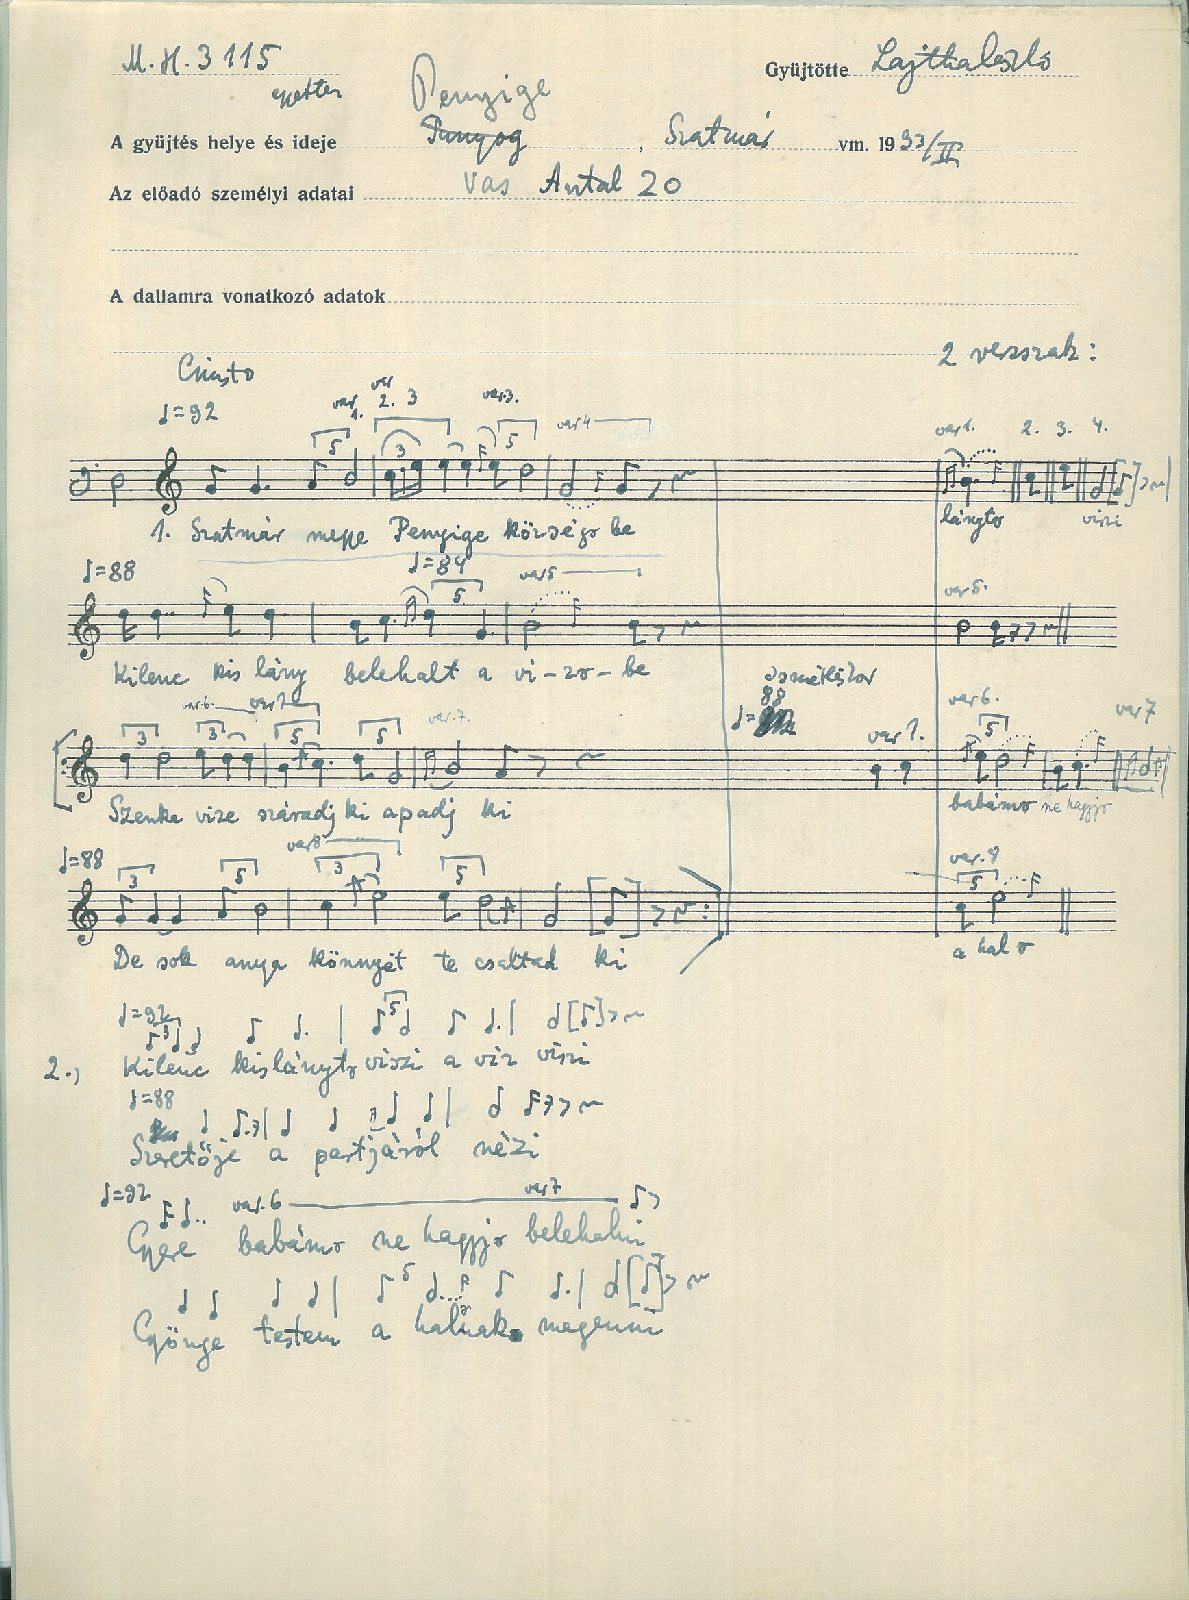 M.H. 3115
Gyüjtötte Lajtha László
Penyige
A gyüjtés helye és ideje Penyog, Szatmár vm. 1933/II
Az előadó személyi adatai Vas Antal 20
A dallamra vonatkozó adatok
2 versszak:
♩=92
var 1. var 2. 3 var 3. var 4
var 1. 2. 3. 4.
1. Szatmár megye Penyige községbe
lányto viszi
♩=88 ♩=84 var 5
var 5.
Kilenc kis lány belehalt a vi-zo-be
var. 6. var. 7.
♩=88 var 1. var 6. var 7
Szenke vize száradj ki apadj ki
babámo ne hagyjo
♩=88 var 8
var. 8
De sok anya könnyét te csaltad ki
a halo
♩=92
2., Kilenc kislányto viszi a víz viszi
♩=88
Szeretője a partjáról nézi
♩=92 var. 6 var 7
Gyere babámo ne hagyjo belehalni
Gyönge testem a halnak megenni